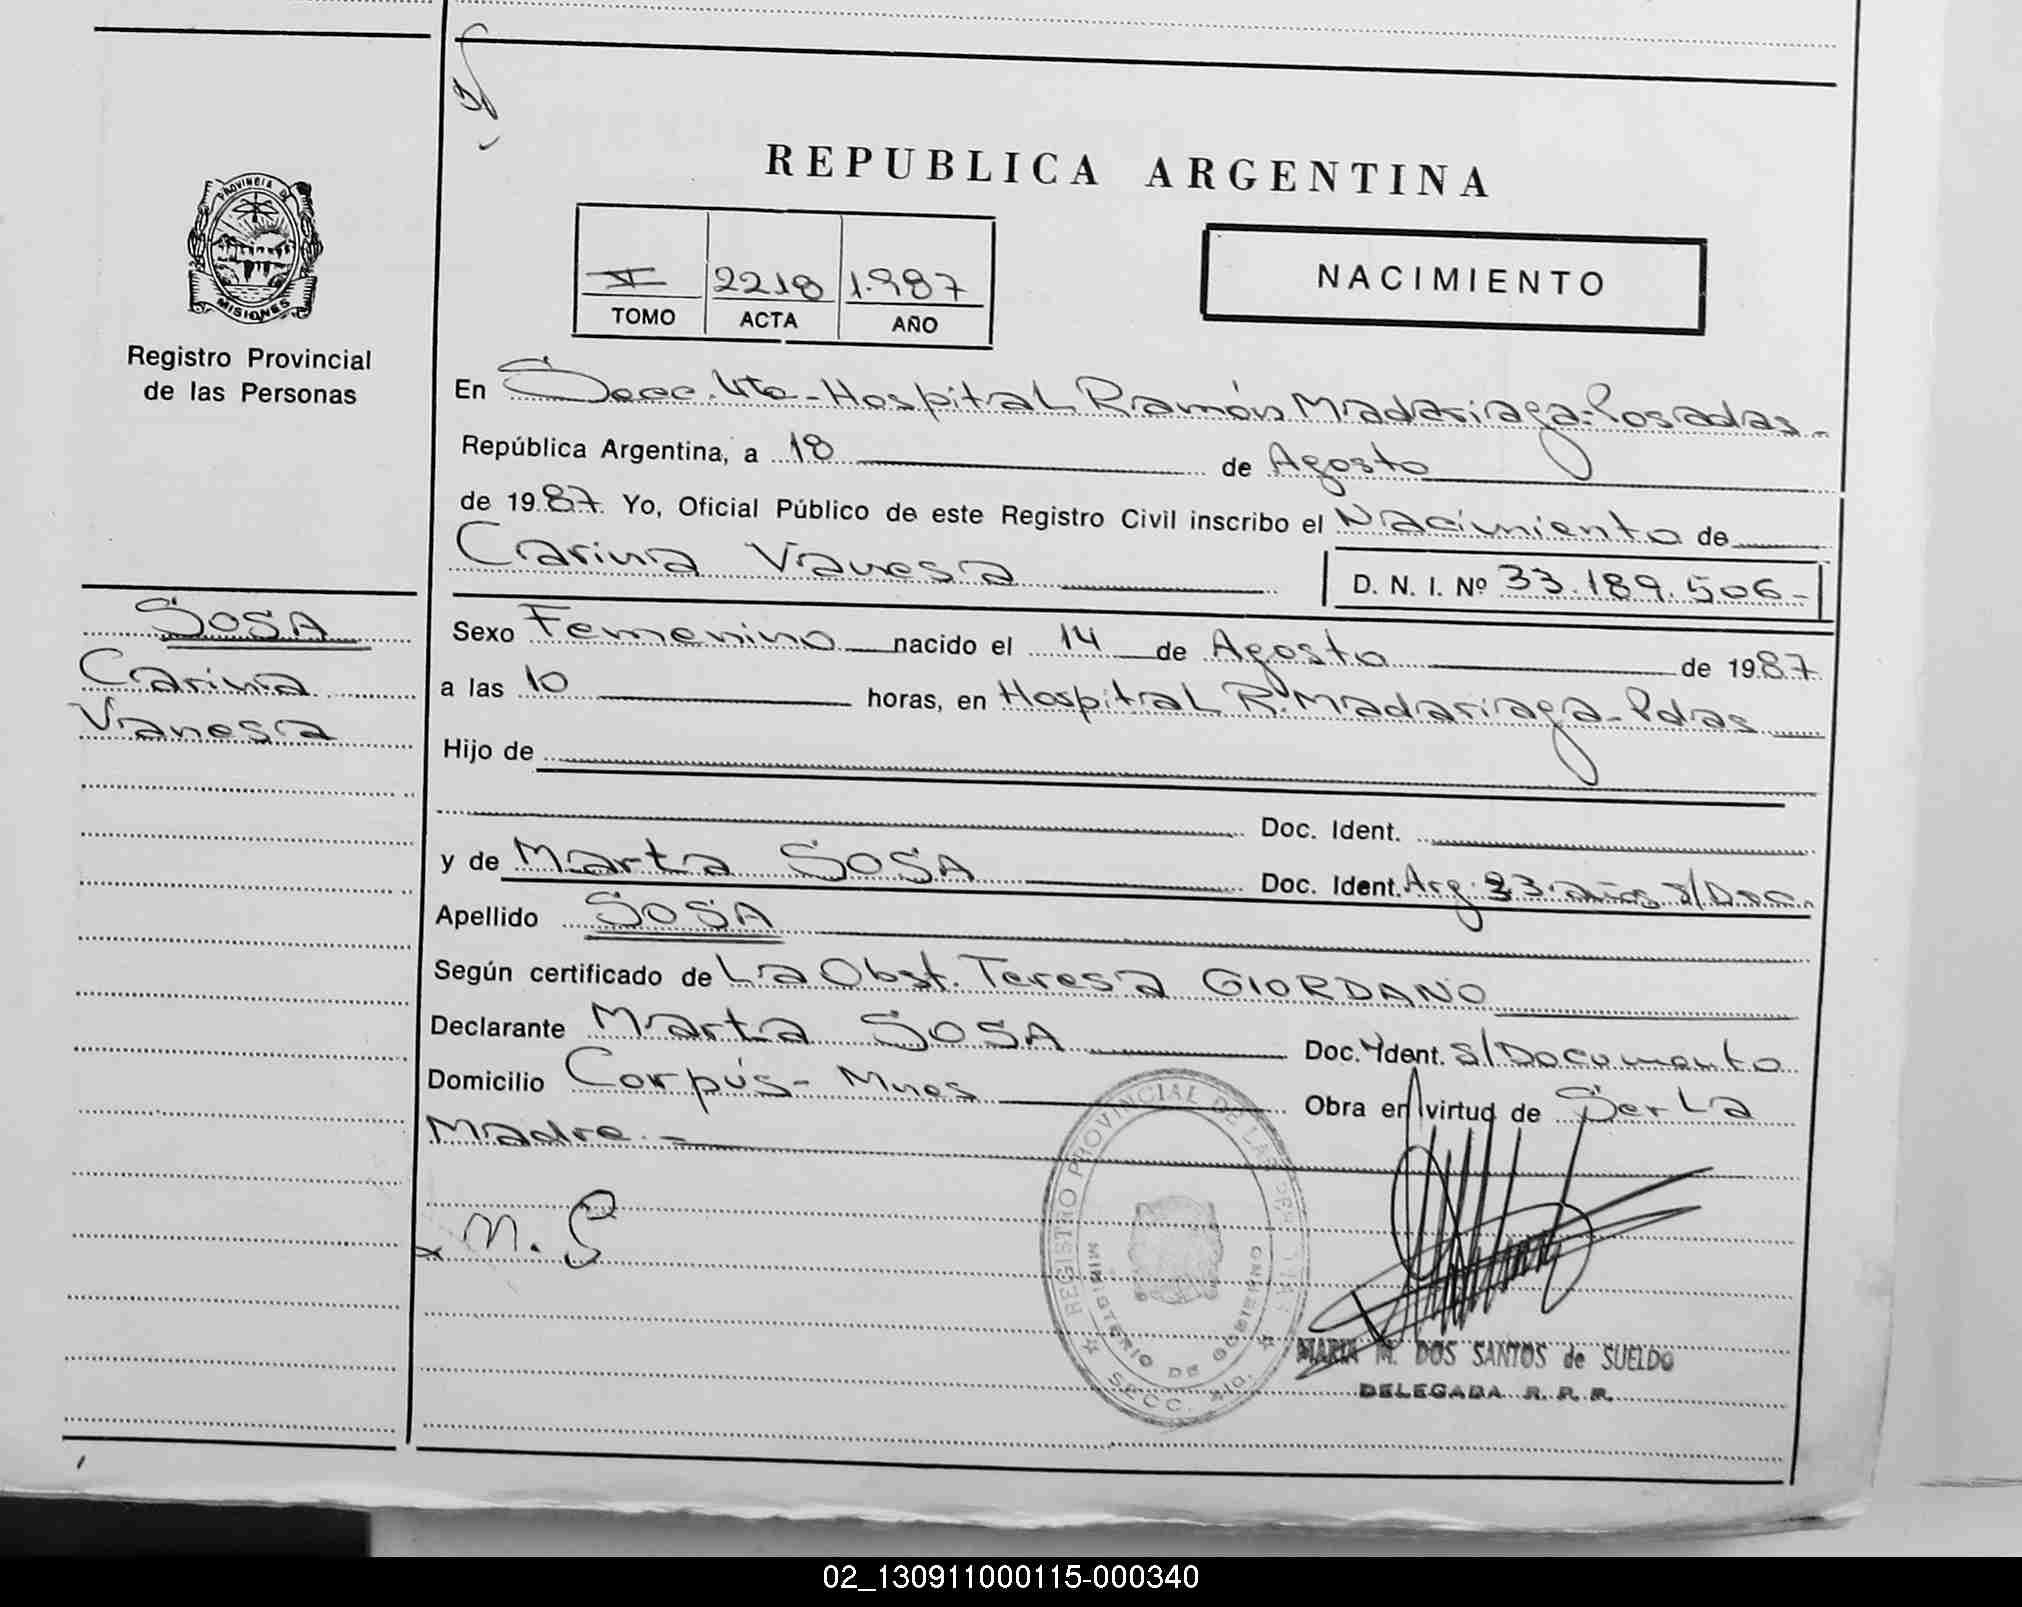 REPUBLICA ARGENTINA
PROVINCIA DE
MISIONES
Registro Provincial
de las Personas
2218 1.987
TOMO ACTA AÑO
NACIMIENTO
En Secc. 4ta-Hospital Ramón Madariaga-Posadas-
República Argentina, a 18 de Agosto
de 1987 Yo, Oficial Público de este Registro Civil inscribo el Nacimiento de
Carina Vanesa D. N. I. Nº 33.189.506-
SOSA
Carina
Vanesa
Sexo Femenino nacido el 14 de Agosto de 1987
a las 10 horas, en Hospital R. Madariaga-Pdas
Hijo de
Doc. Ident.
y de Marta SOSA Doc. Ident. Arg. 23 años s/Doc.
Apellido SOSA
Según certificado de La Obst. Teresa GIORDANO
Declarante Marta SOSA Doc. Ident. S/Documento
Domicilio Corpús- Mnes Obra en virtud de Ser La
Madre.-
M. S
REGISTRO PROVINCIAL DE LAS
MINISTERIO DE GOBIERNO
SECC.
MARIA M. DOS SANTOS de SUELDO
DELEGADA R. P. P.
02_130911000115-000340